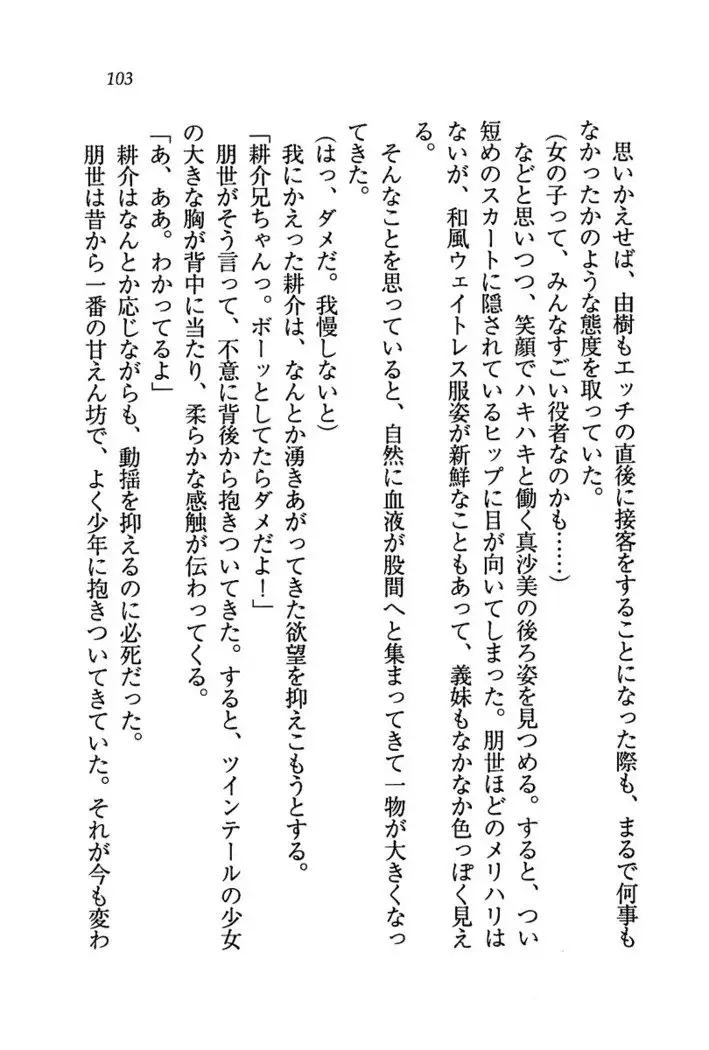 103
思いかえせば、由樹もエッチの直後に接客をすることになった際も、まるで何事も
なかったかのような態度を取っていた。
(女の子って、みんなすごい役者なのかも……)
などと思いつつ、笑顔でハキハキと働く真沙美の後ろ姿を見つめる。すると、つい
短めのスカートに隠されているヒップに目が向いてしまった。朋世ほどのメリハリは
ないが、和風ウェイトレス服姿が新鮮なこともあって、義妹もなかなか色っぽく見え
る。
そんなことを思っていると、自然に血液が股間へと集まってきて一物が大きくなっ
てきた。
(はっ、ダメだ。我慢しないと)
我にかえった耕介は、なんとか湧きあがってきた欲望を抑えこもうとする。
「耕介兄ちゃんっ。ボーッとしてたらダメだよ!」
朋世がそう言って、不意に背後から抱きついてきた。すると、ツインテールの少女
の大きな胸が背中に当たり、柔らかな感触が伝わってくる。
「あ、ああ。わかってるよ」
耕介はなんとか応じながらも、動揺を抑えるのに必死だった。
朋世は昔から一番の甘えん坊で、よく少年に抱きついてきていた。それが今も変わ